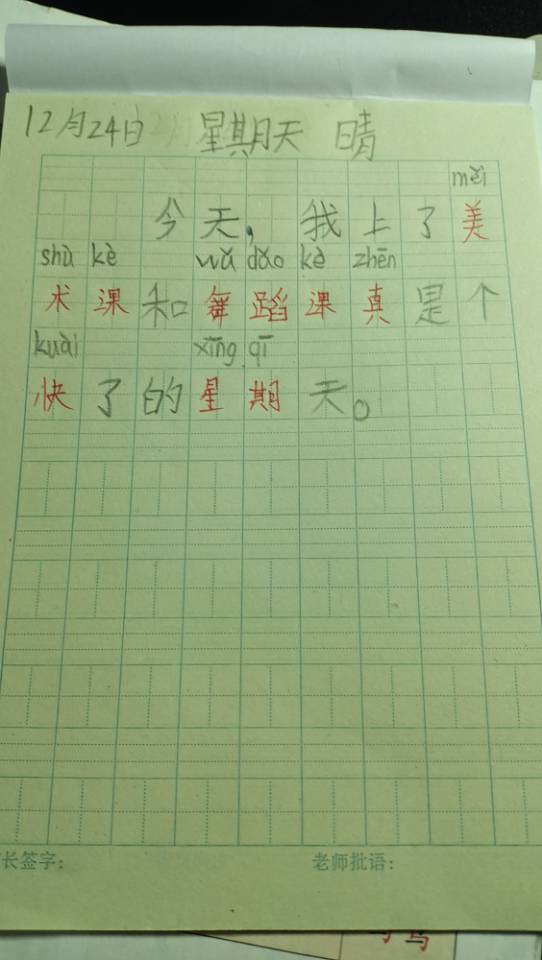 12月24日 星期天 晴
měi
今天,我上了美
shù kè wǔ dǎo kè zhēn
术课和舞蹈课真是个
kuài xīng qī
快了的星期天。
长签字: 老师批语: